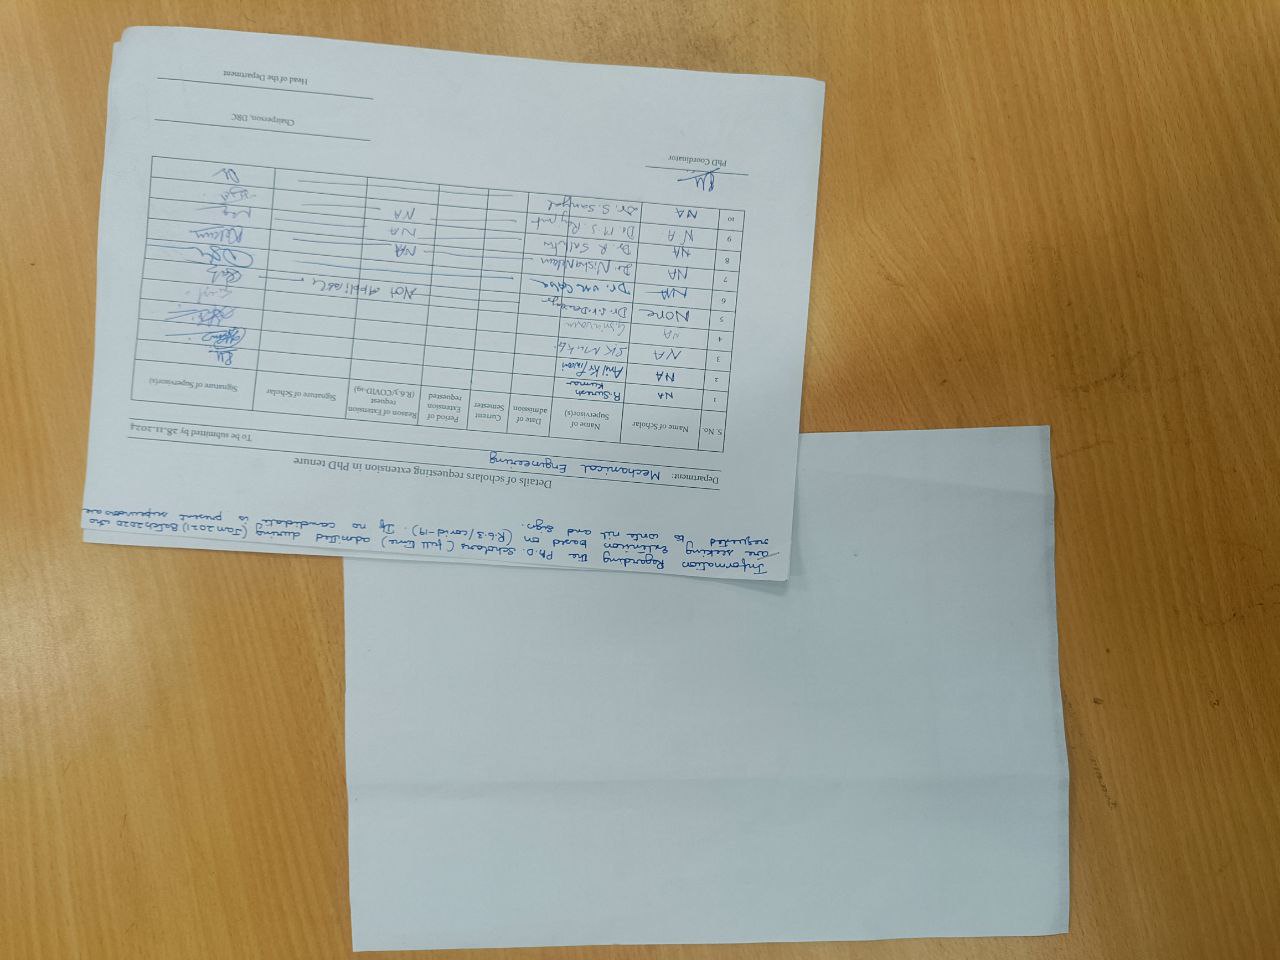 Information Regarding the Ph.D. scholars (full time) admitted during (Jan 2021) Batch 2020 who
are seeking Extension based on (R.6.3/covid-19). If no candidate is present supervisors are
requested to write nil and sign.
Details of scholars requesting extension in PhD tenure
Department: Mechanical Engineering
To be submitted by 28-11-2024
S. No. Name of Scholar Name of Supervisor(s) Date of admission Current Semester Period of Extension requested Reason of Extension request (R.6.y/COVID-19) Signature of Scholar Signature of Supervisor(s)
1 NA R. Suresh Kumar
2 NA Anil Kr
3 NA SK
4 NA
5 None Dr. S.K.
6 NA Dr. Not Applicable
7 NA Dr. Nishant
8 NA Dr. R. NA
9 NA Dr M.S. NA
10 NA Dr. S. Sanyal NA
PhD Coordinator
Chairperson, DRC
Head of the Department